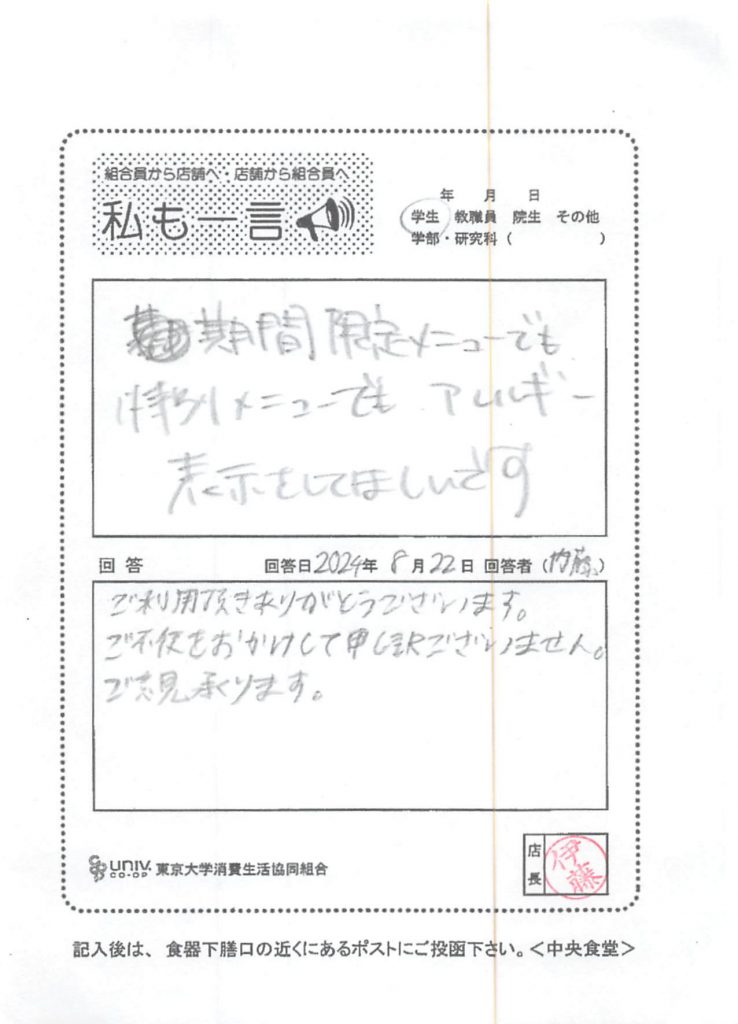 組合員から店舗へ・店舗から組合員へ
私も一言
年 月 日
学生 教職員 院生 その他
学部・研究科( )
期間限定メニューでも
特別メニューでも アレルギー
表示をしてほしいです
回答 回答日2024年 8月22日 回答者(内藤)
ご利用頂きありがとうございます。
ご不便をおかけして申し訳ございません。
ご意見承ります。
univ. CO-OP 東京大学消費生活協同組合
店長 伊藤
記入後は、食器下膳口の近くにあるポストにご投函下さい。<中央食堂>